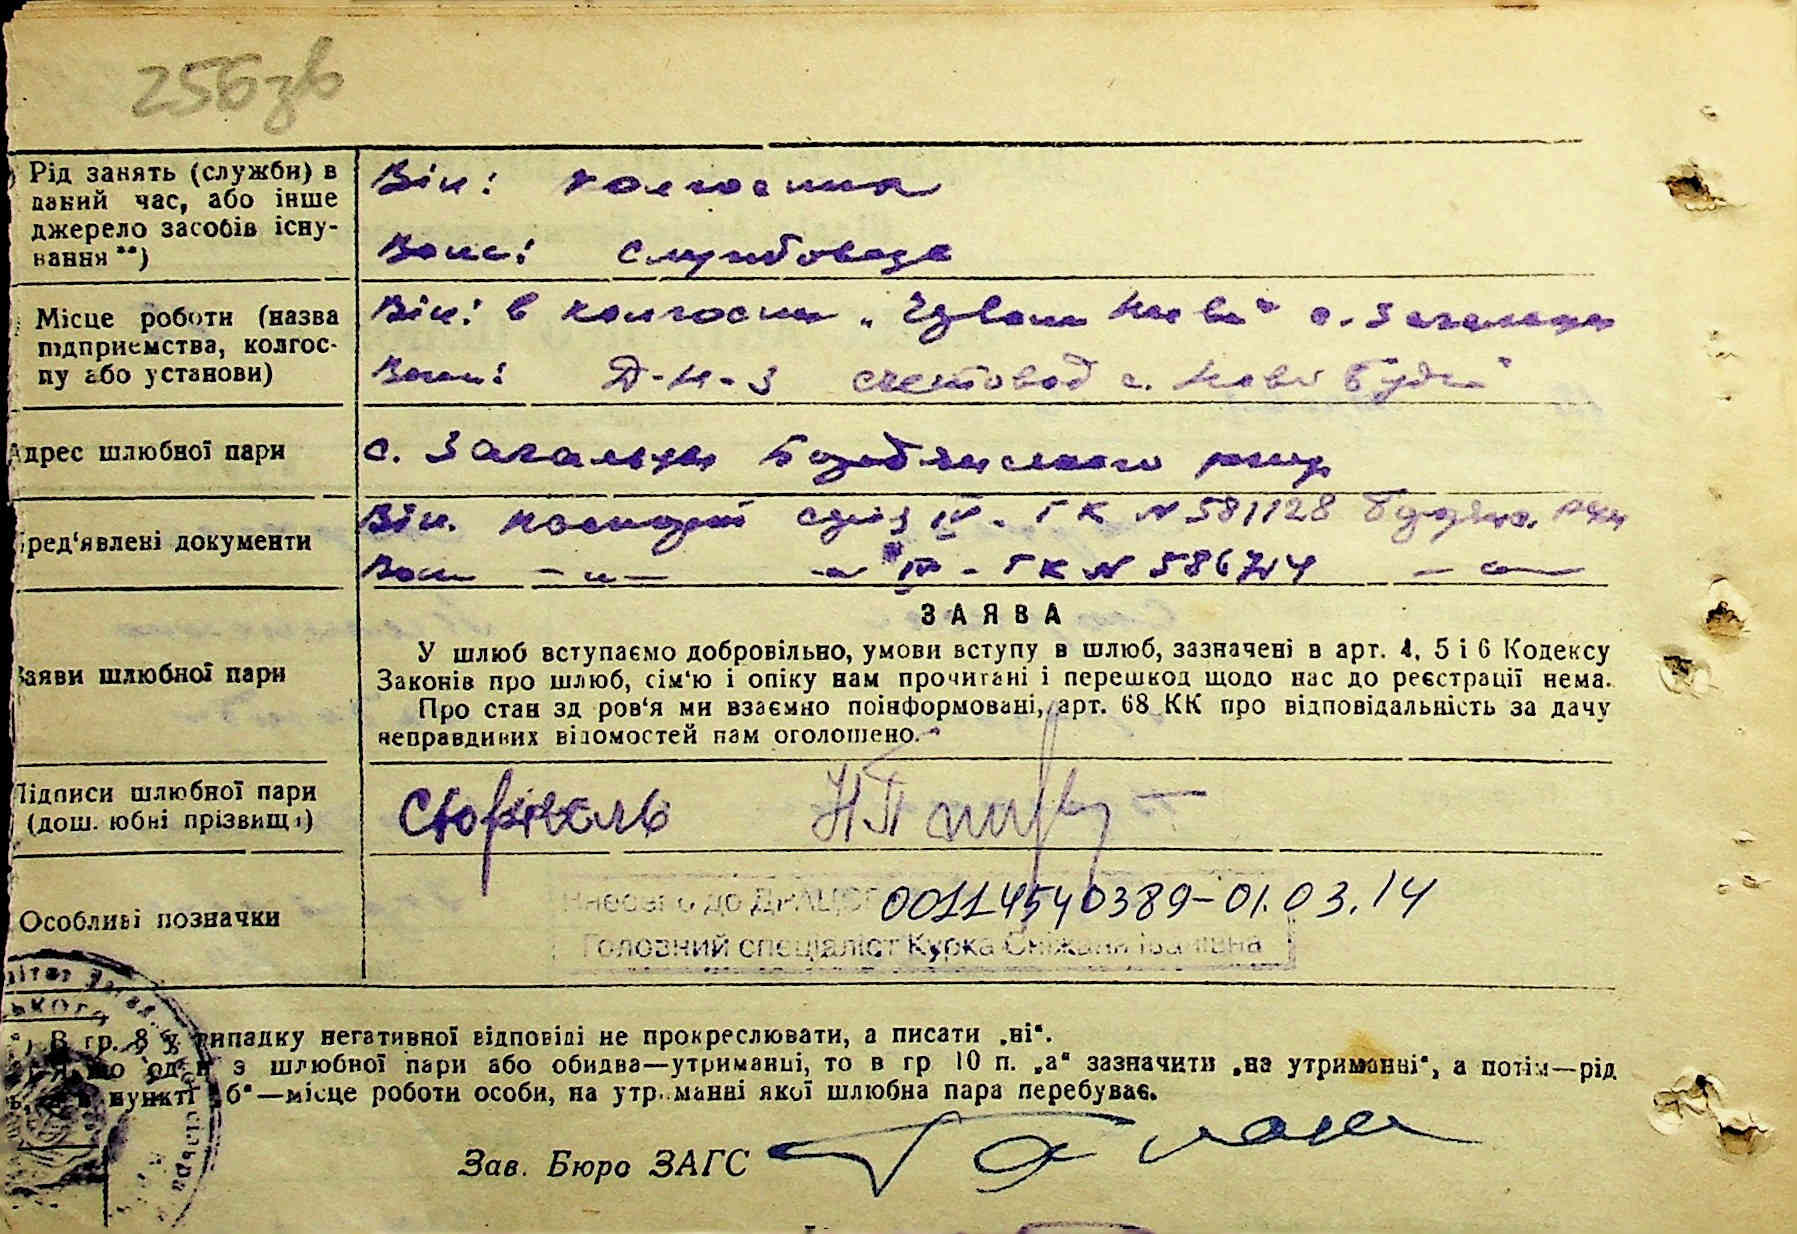 256зв
Рід занять (служби) в
даний час, або інше
джерело засобів існу-
вання **)
Він: колгоспник
Вона: службовець
Місце роботи (назва
підприємства, колгос-
пу або установи)
Він: в колгоспі с. Загальці
Вона: счетовод с. Нова Буда
Адрес шлюбної пари
с. Загальці Бородянського району
Пред'явлені документи
Він. паспорт серія IV-ГК N 581128
Вона -„- -„- IV-ГК N 586714 -„-
Заяви шлюбної пари
ЗАЯВА
У шлюб вступаємо добровільно, умови вступу в шлюб, зазначені в арт. 4, 5 і 6 Кодексу
Законів про шлюб, сім'ю і опіку нам прочитані і перешкод щодо нас до реєстрації нема.
Про стан здоров'я ми взаємно поінформовані, арт. 68 КК про відповідальність за дачу
неправдивих відомостей нам оголошено.
Підписи шлюбної пари
(дошлюбні прізвищ)
Особливі позначки
Внесено до ДРАЦСГ 00114540389-01.03.14
Головний спеціаліст Курка Сніжана Іванівна
*) В гр. 8 у випадку негативної відповіді не прокреслювати, а писати „ні“.
Якщо один з шлюбної пари або обидва—утриманці, то в гр 10 п. „а“ зазначити „на утриманні“, а потім—рід
пункті „б“—місце роботи особи, на утриманні якої шлюбна пара перебуває.
Зав. Бюро ЗАГС